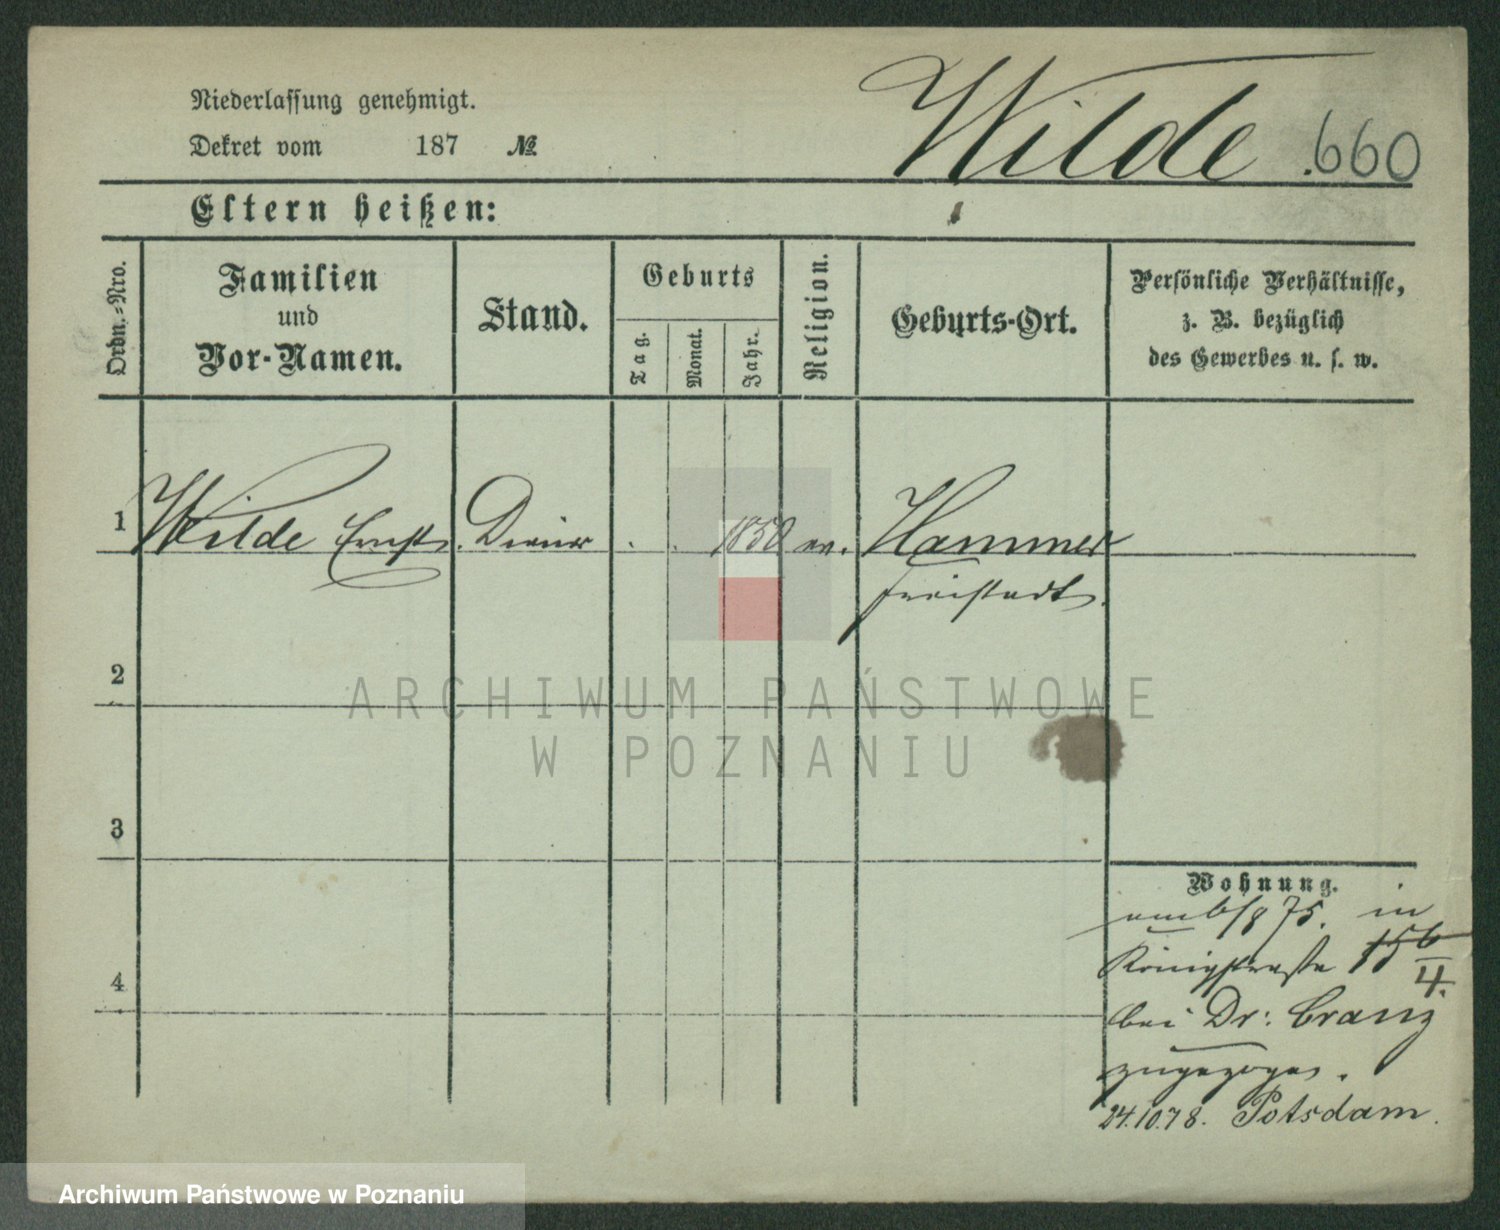 Niederlassung genehmigt.
Dekret vom 187 №
Wilde
.660
Eltern heißen:
Ordn.-Nro.
Familien
und
Vor-Namen.
Stand.
Geburts
Tag.
Monat.
Jahr.
Religion.
Geburts-Ort.
Persönliche Verhältnisse,
z. B. bezüglich
des Gewerbes u. s. w.
1 Wilde Ernst. Diener . . 1850 ev. Hammer
Freistadt.
2
ARCHIWUM PAŃSTWOWE
W POZNANIU
3
Wohnung.
am 6/8 75. in
Königstraße 15b
4.
bei Dr: Cranz
zugezogen.
4
24.10.78. Potsdam.
Archiwum Państwowe w Poznaniu